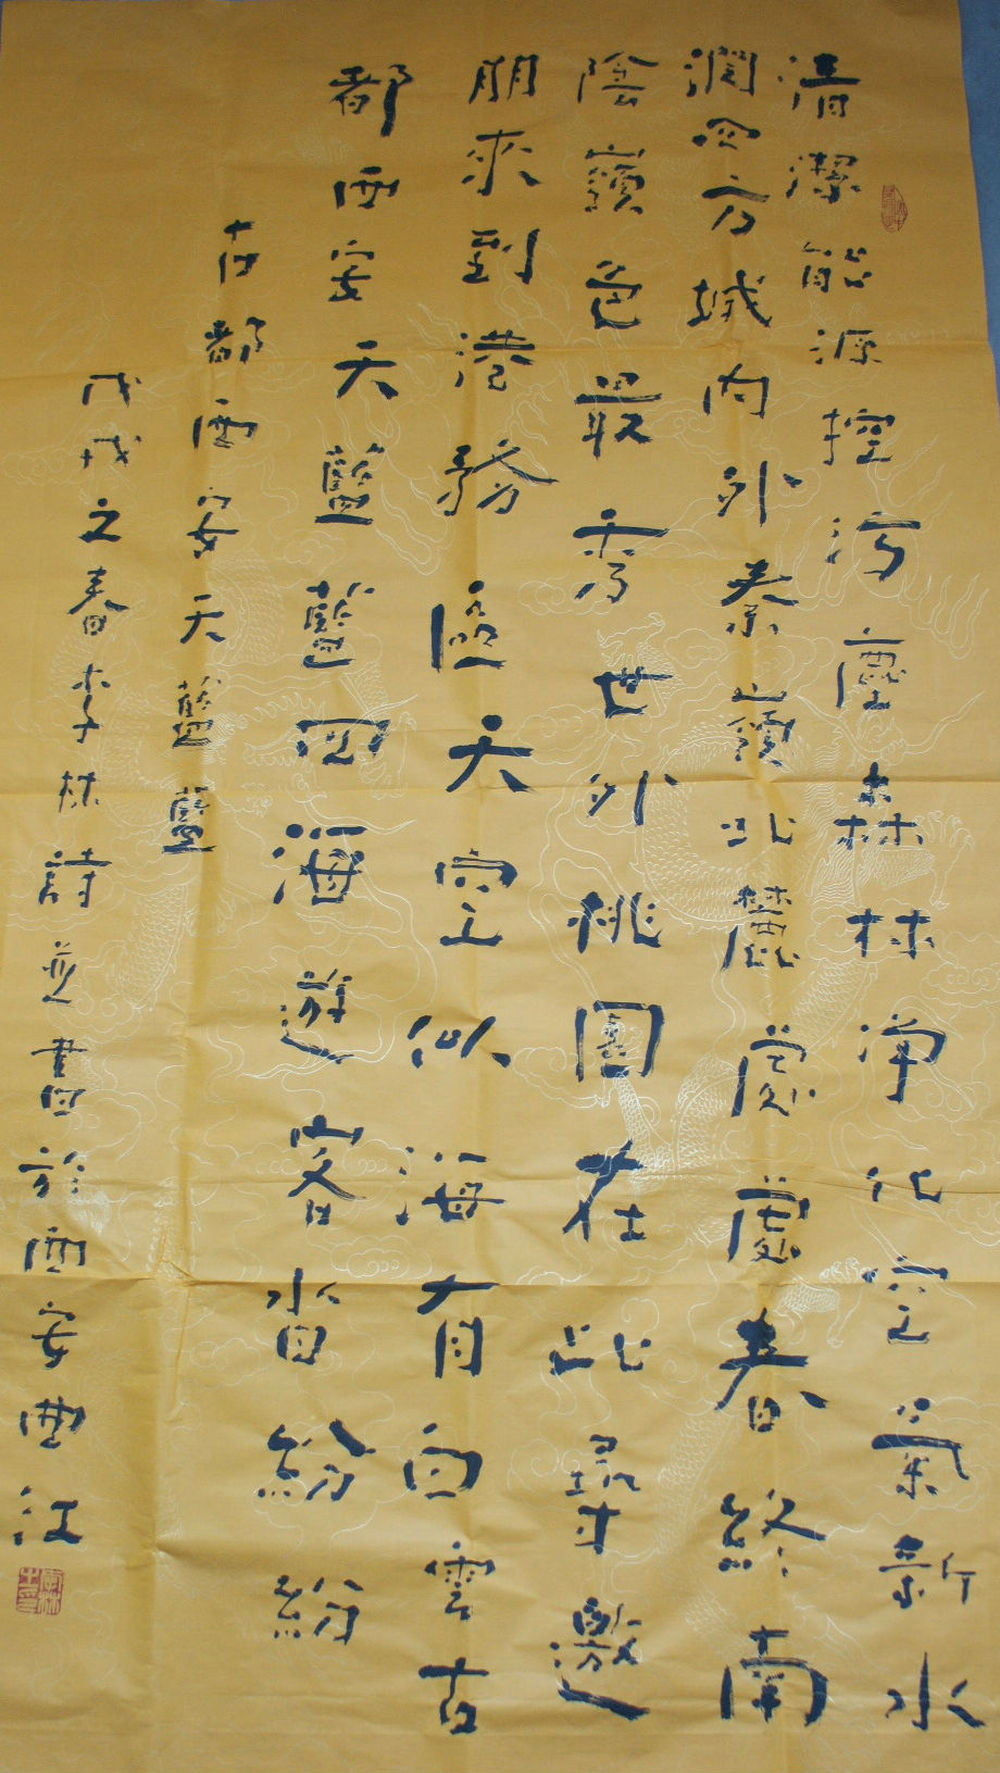 清潔能源控污塵森林净化空氣新水
潤四方城内外秦嶺北麓處處春終南
陰嶺色最秀世外桃園在此尋邀
朋來到港務區天空似海有白雲古
都西安天藍藍四海遊客皆紛紛
古都西安天藍藍
戊戌之春李林詩並書於西安曲江